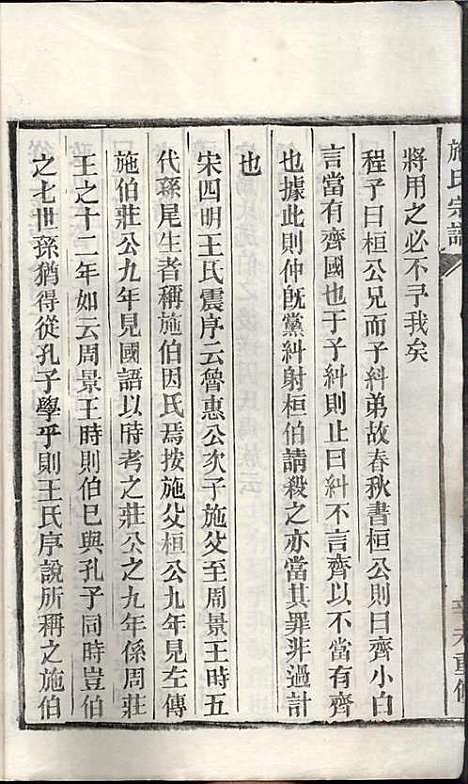 施氏宗譜
將用之必不予我矣
程子曰桓公兄而子糾弟故春秋書桓公則曰齊小白
言當有齊國也于子糾則止曰糾不言齊以不當有齊
也據此則仲旣黨糾射桓伯請殺之亦當其罪非過計
也
宋四明王氏震序云魯惠公次子施父至周景王時五
代孫尾生者稱施伯因氏焉按施父桓公九年見左傳
施伯莊公九年見國語以時考之莊公之九年係周莊
王之十二年如云周景王時則伯巳與孔子同時豈伯
之七世孫猶得從孔子學乎則王氏序說所稱之施伯